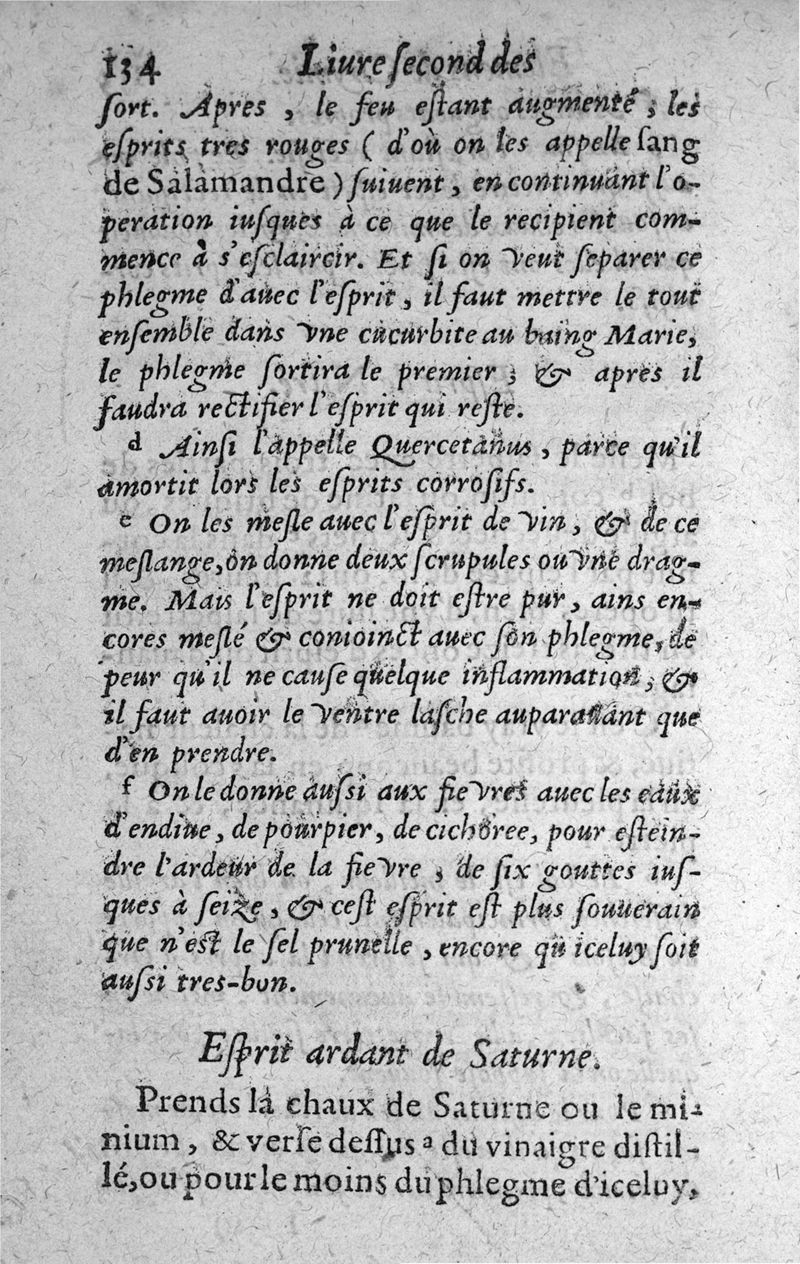 134 Liure ſecond des
ſort. Apres, le feu eſtant augmenté, les
eſprits tres rouges ( d'où on les appelle ſang
de Salamandre ) ſuiuent, en continuant l'o-
peration iuſques à ce que le recipient com-
mence à s'eſclaircir. Et ſi on veut ſeparer ce
phlegme d'auec l'eſprit, il faut mettre le tout
enſemble dans vne cucurbite au baing Marie,
le phlegme ſortira le premier ; & apres il
faudra rectifier l'eſprit qui reſte.
d Ainſi l'appelle Quercetanus, parce qu'il
amortit lors les eſprits corroſifs.
e On les meſle auec l'eſprit de vin, & de ce
meſlange, on donne deux ſcrupules ou vne drag-
me. Mais l'eſprit ne doit eſtre pur, ains en-
cores meſlé & conioinct auec ſon phlegme, de
peur qu'il ne cauſe quelque inflammation, &
il faut auoir le ventre laſche auparauant que
d'en prendre.
f On le donne auſsi aux fievres auec les eaux
d'endiue, de pourpier, de cichoree, pour eſtein-
dre l'ardeur de la fievre ; de ſix gouttes iuſ-
ques à ſeize, & ceſt eſprit eſt plus ſouuerain
que n'eſt le ſel prunelle, encore qu'iceluy ſoit
auſsi tres-bon.
Eſprit ardant de Saturne.
Prends la chaux de Saturne ou le mi-
nium, & verſe deſſus a du vinaigre diſtil-
lé, ou pour le moins du phlegme d'iceluy,